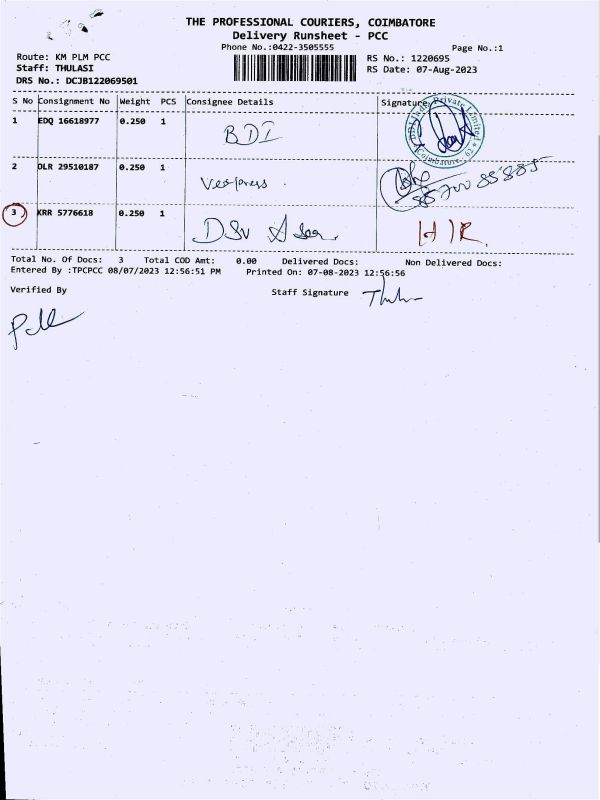 THE PROFESSIONAL COURIERS, COIMBATORE
Delivery Runsheet - PCC
Phone No.:0422-3505555
Page No.:1
Route: KM PLM PCC
Staff: THULASI
DRS No.: DCJB122069501
RS No.: 1220695
RS Date: 07-Aug-2023
S No Consignment No Weight PCS Consignee Details Signature
1 EDQ 16618977 0.250 1 BDI
2 OLR 29510187 0.250 1
3 KRR 5776618 0.250 1
Total No. Of Docs: 3 Total COD Amt: 0.00 Delivered Docs: Non Delivered Docs:
Entered By :TPCPCC 08/07/2023 12:56:51 PM Printed On: 07-08-2023 12:56:56
Verified By Staff Signature